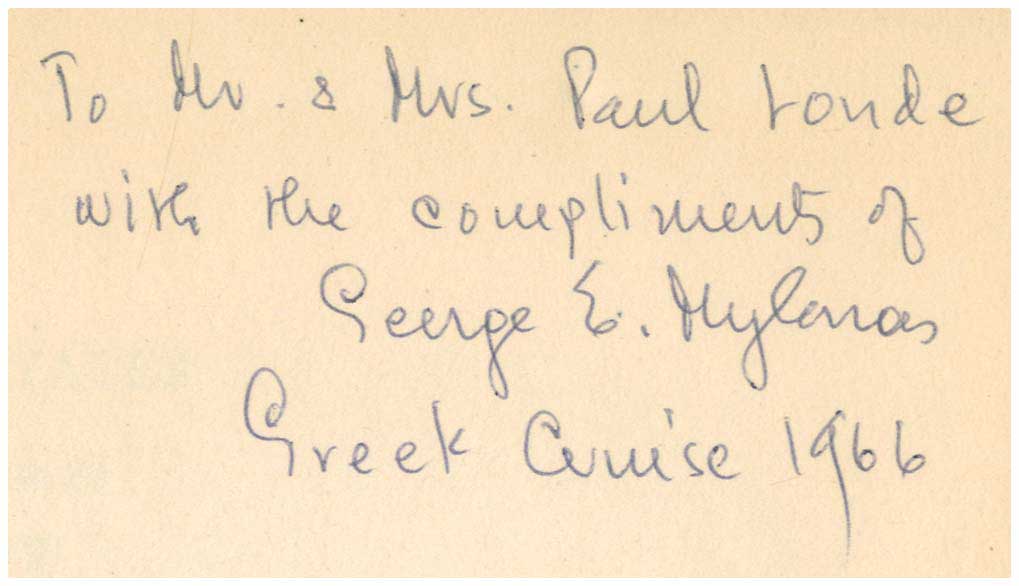 To Mr. & Mrs. Paul Londe
with the compliments of
George E. Mylonas
Greek Cruise 1966